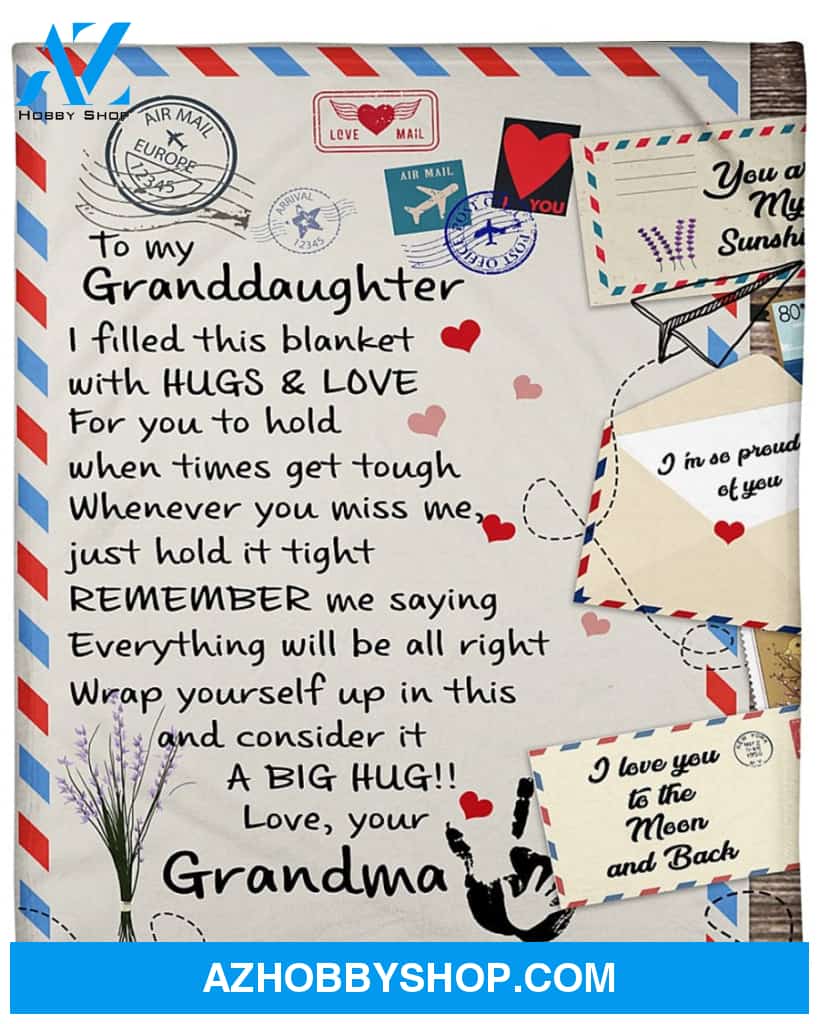 AZ
HOBBY SHOP
AIR MAIL
EUROPE
12345
LOVE MAIL
ARRIVAL
12345
AIR MAIL
I YOU
POST OFFICE
POST OFFICE
You a
My
Sunshi
80
To my
Granddaughter
I filled this blanket
with HUGS & LOVE
For you to hold
when times get tough
Whenever you miss me,
just hold it tight
REMEMBER me saying
Everything will be all right
Wrap yourself up in this
and consider it
A BIG HUG!!
Love, your
Grandma
I'm so proud
of you
NEW YORK
1956
N.Y.
I love you
to the
Moon
and Back
AZHOBBYSHOP.COM